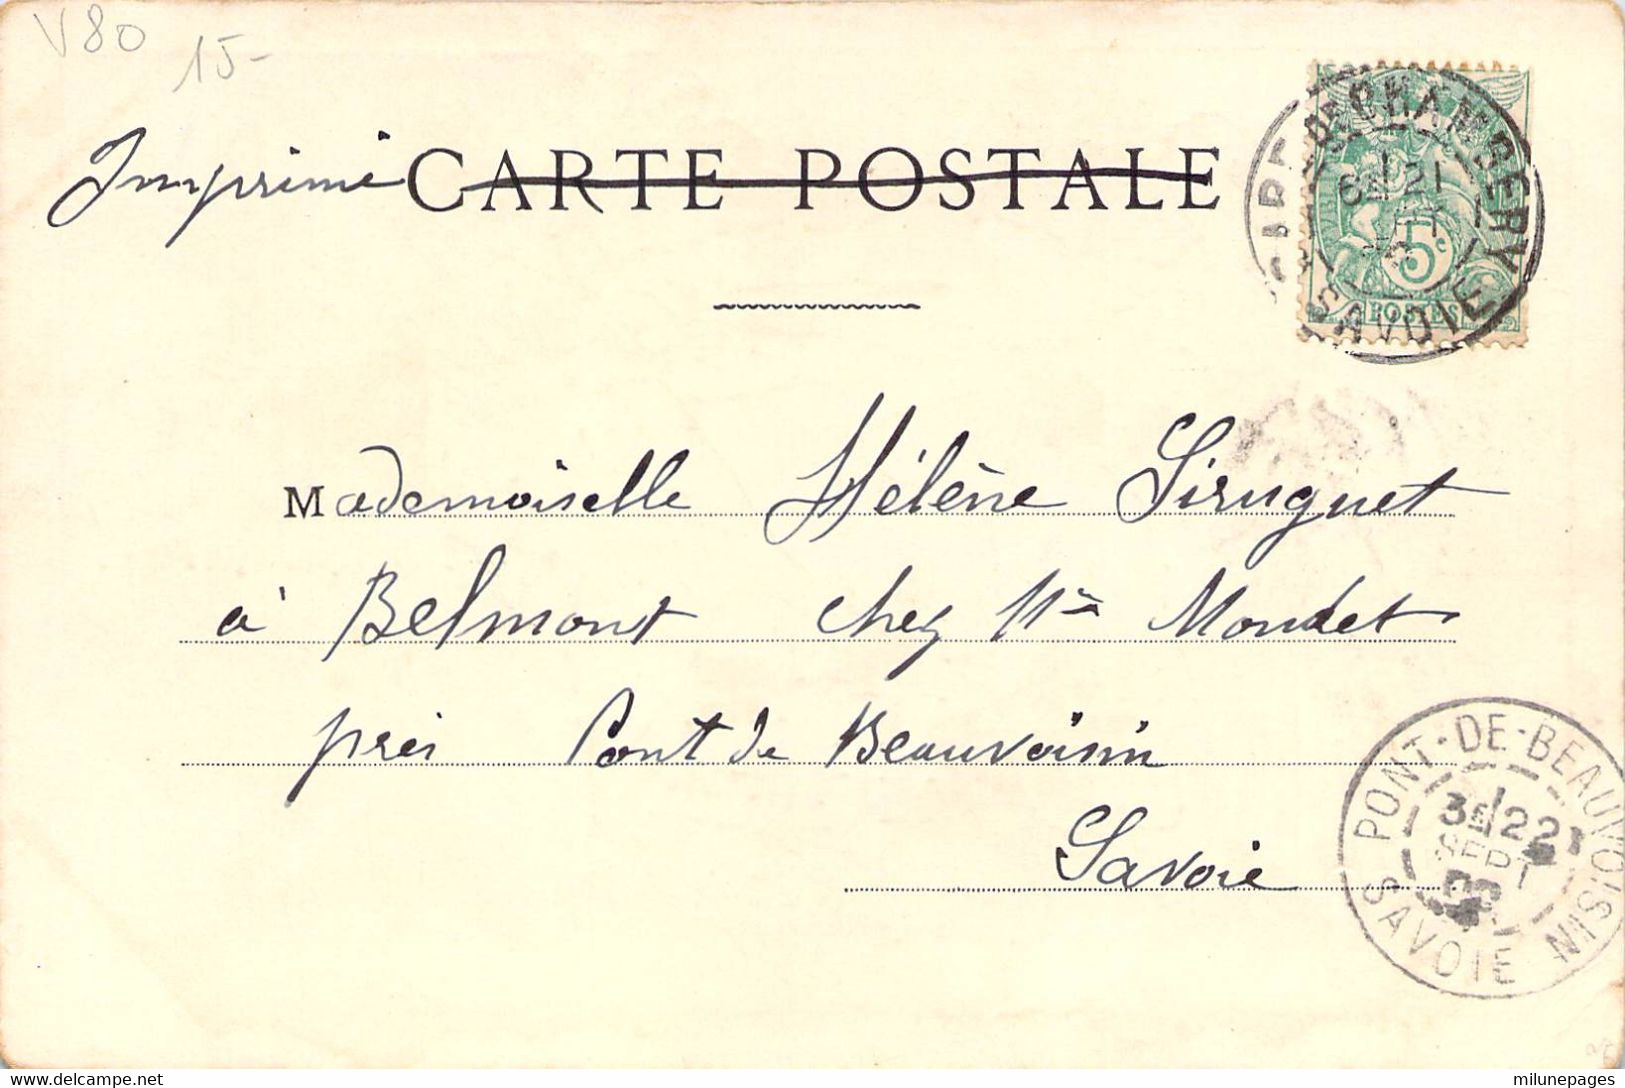 V80
15-
Imprimé CARTE POSTALE
GARE DE CHAMBERY
6E 21
SAVOIE
5c
POSTES
Mademoiselle Hélène Siruguet
à Belmont chez Mme Moudet
près Pont de Beauvoisin
Savoie
PONT-DE-BEAUVOISIN
3E 22
SEPT
03
SAVOIE
www.delcampe.net
milunepages